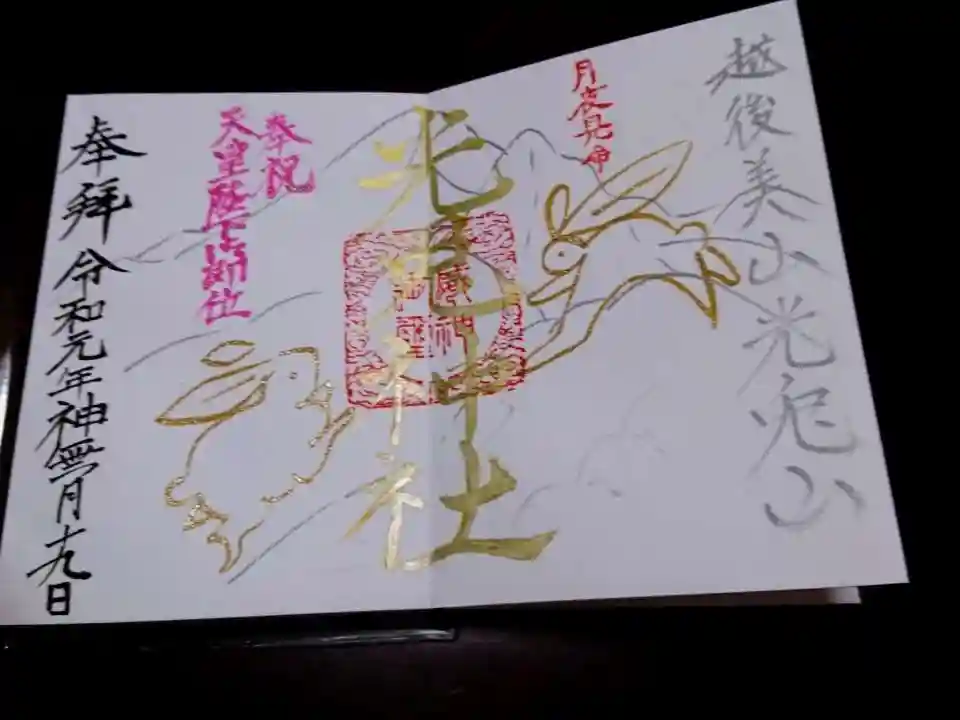 越後美山光兎山
月夜見命
光兎神社
奉祝
天皇陛下即位
奉拝 令和元年神無月十九日